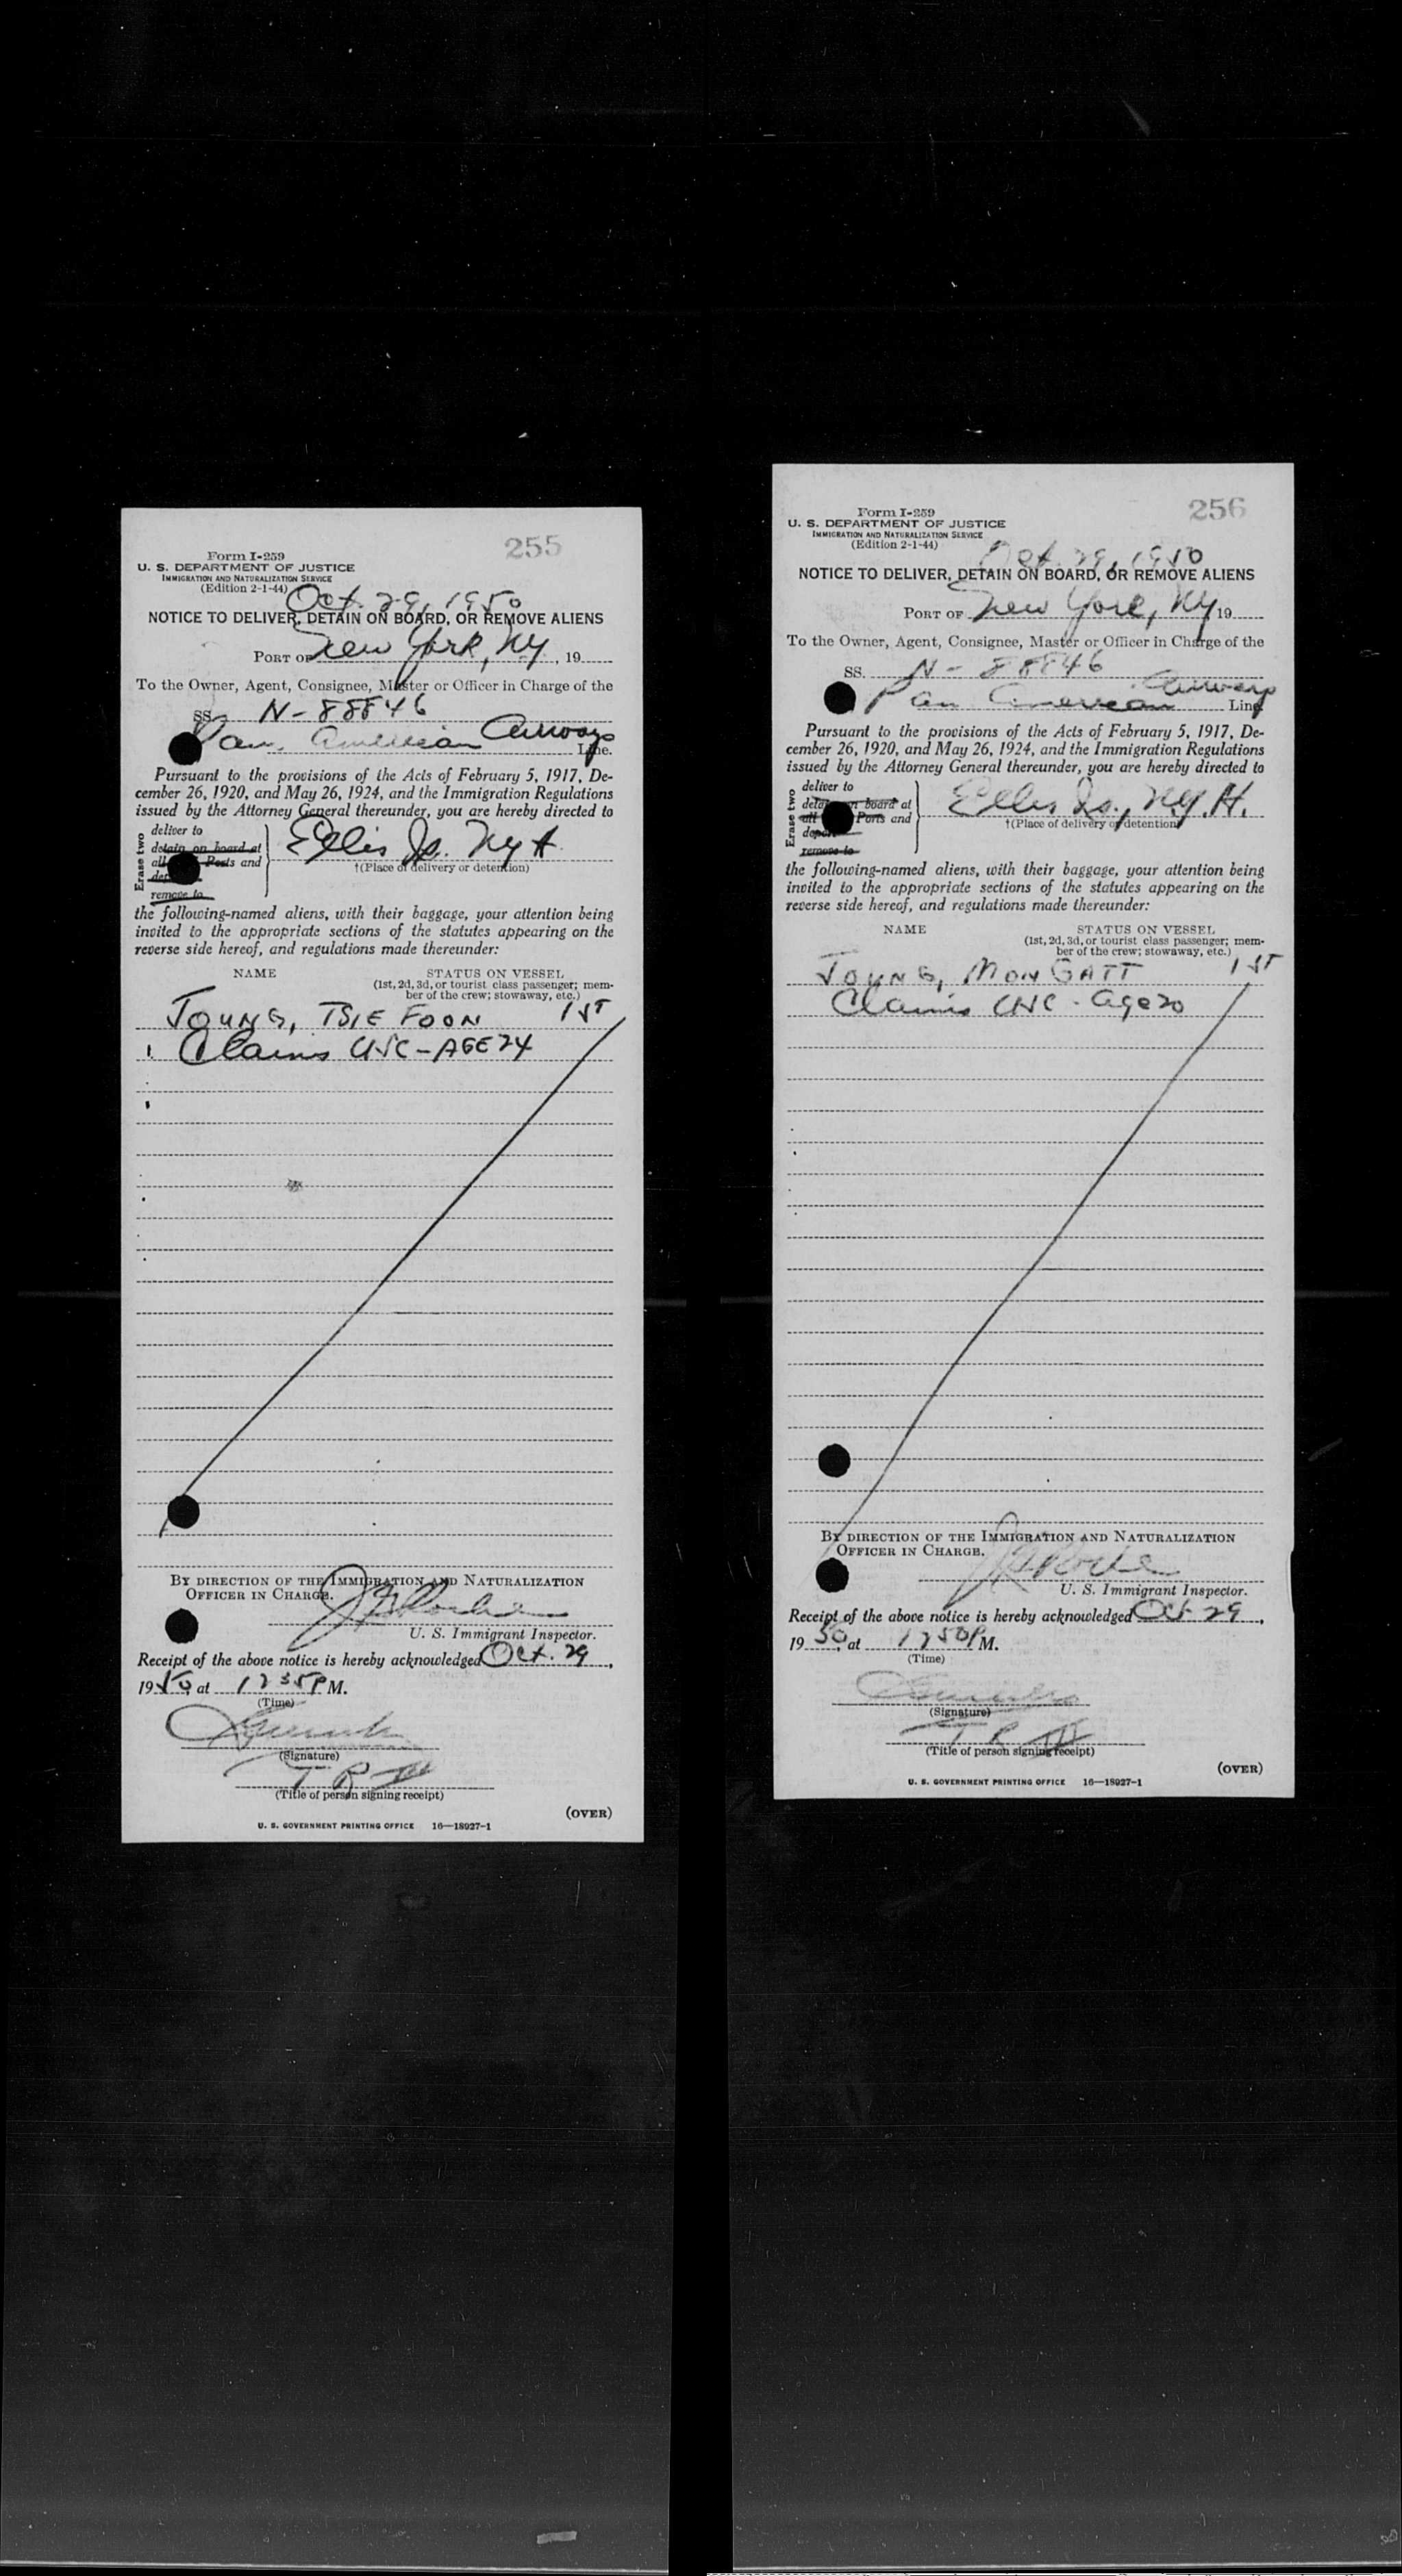 255
Form I-259
U. S. DEPARTMENT OF JUSTICE
IMMIGRATION AND NATURALIZATION SERVICE
(Edition 2-1-44)
Oct. 29, 1950
NOTICE TO DELIVER, DETAIN ON BOARD, OR REMOVE ALIENS
PORT OF New York, NY, 19
To the Owner, Agent, Consignee, Master or Officer in Charge of the
SS. N-88846
Pan American Airways Line.
Pursuant to the provisions of the Acts of February 5, 1917, De-
cember 26, 1920, and May 26, 1924, and the Immigration Regulations
issued by the Attorney General thereunder, you are hereby directed to
Erase two
deliver to
detain on board at
all Ports and
det
remove to
Ellis Is. NY H.
†(Place of delivery or detention)
the following-named aliens, with their baggage, your attention being
invited to the appropriate sections of the statutes appearing on the
reverse side hereof, and regulations made thereunder:
NAME
STATUS ON VESSEL
(1st, 2d, 3d, or tourist class passenger; mem-
ber of the crew; stowaway, etc.)
JOUNG, TSIE FOON 1ST
Claims USC - AGE 24
BY DIRECTION OF THE IMMIGRATION AND NATURALIZATION
OFFICER IN CHARGE.
U. S. Immigrant Inspector.
Receipt of the above notice is hereby acknowledged Oct. 29,
1950, at 1235P M.
(Time)
(Signature)
T R
(Title of person signing receipt)
(OVER)
U. S. GOVERNMENT PRINTING OFFICE 16—18927-1
256
Form I-259
U. S. DEPARTMENT OF JUSTICE
IMMIGRATION AND NATURALIZATION SERVICE
(Edition 2-1-44)
Oct. 29, 1950
NOTICE TO DELIVER, DETAIN ON BOARD, OR REMOVE ALIENS
PORT OF New York, NY 19
To the Owner, Agent, Consignee, Master or Officer in Charge of the
SS. N-88846
Pan American Airways Line
Pursuant to the provisions of the Acts of February 5, 1917, De-
cember 26, 1920, and May 26, 1924, and the Immigration Regulations
issued by the Attorney General thereunder, you are hereby directed to
Erase two
deliver to
detain on board at
all Ports and
deport
remove to
Ellis Is., NY. H.
†(Place of delivery or detention)
the following-named aliens, with their baggage, your attention being
invited to the appropriate sections of the statutes appearing on the
reverse side hereof, and regulations made thereunder:
NAME
STATUS ON VESSEL
(1st, 2d, 3d, or tourist class passenger; mem-
ber of the crew; stowaway, etc.)
JOUNG, MON GATT 1ST
Claims USC - Age 20
BY DIRECTION OF THE IMMIGRATION AND NATURALIZATION
OFFICER IN CHARGE.
U. S. Immigrant Inspector.
Receipt of the above notice is hereby acknowledged Oct 29,
1950, at 1250P M.
(Time)
(Signature)
T R
(Title of person signing receipt)
(OVER)
U. S. GOVERNMENT PRINTING OFFICE 16—18927-1